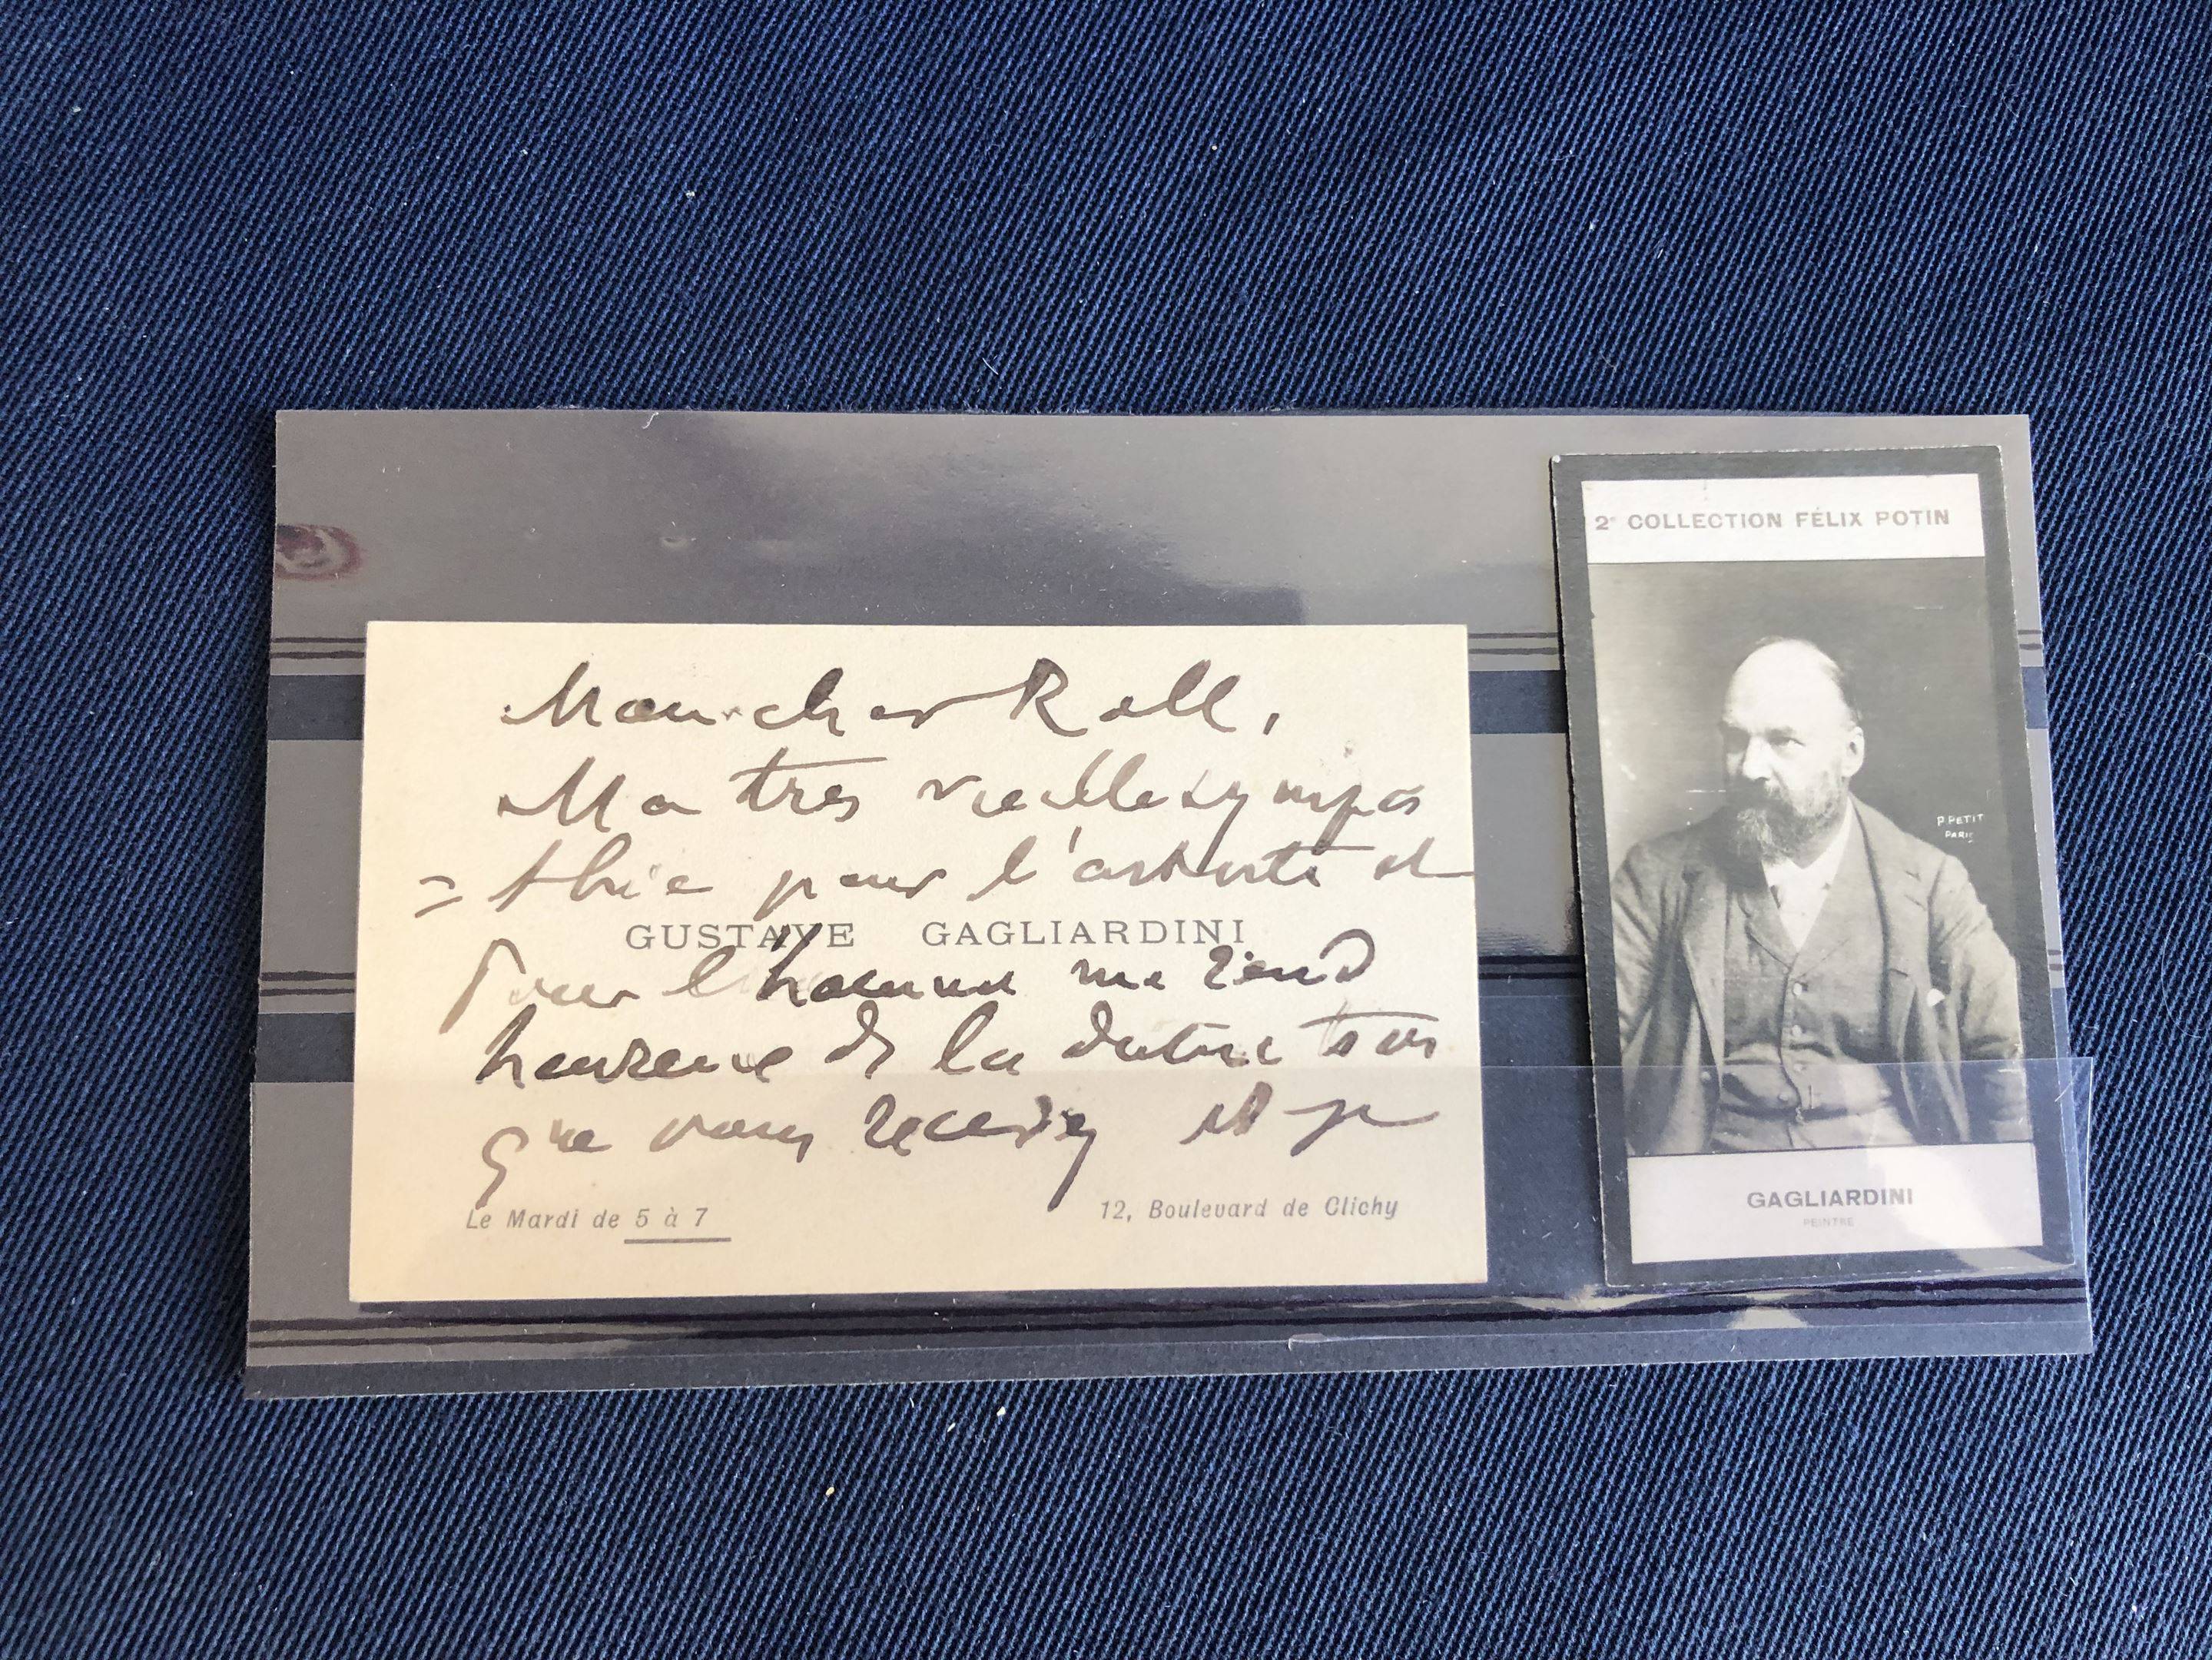 Mon cher Roll,
Ma très vieille sympa
= thie pour l'artiste et
GUSTAVE GAGLIARDINI
Pour l'homme me rend
heureux de la
que vous recevez et je
Le Mardi de 5 à 7
12, Boulevard de Clichy
2e COLLECTION FÉLIX POTIN
P. PETIT
PARIS
GAGLIARDINI
PEINTRE